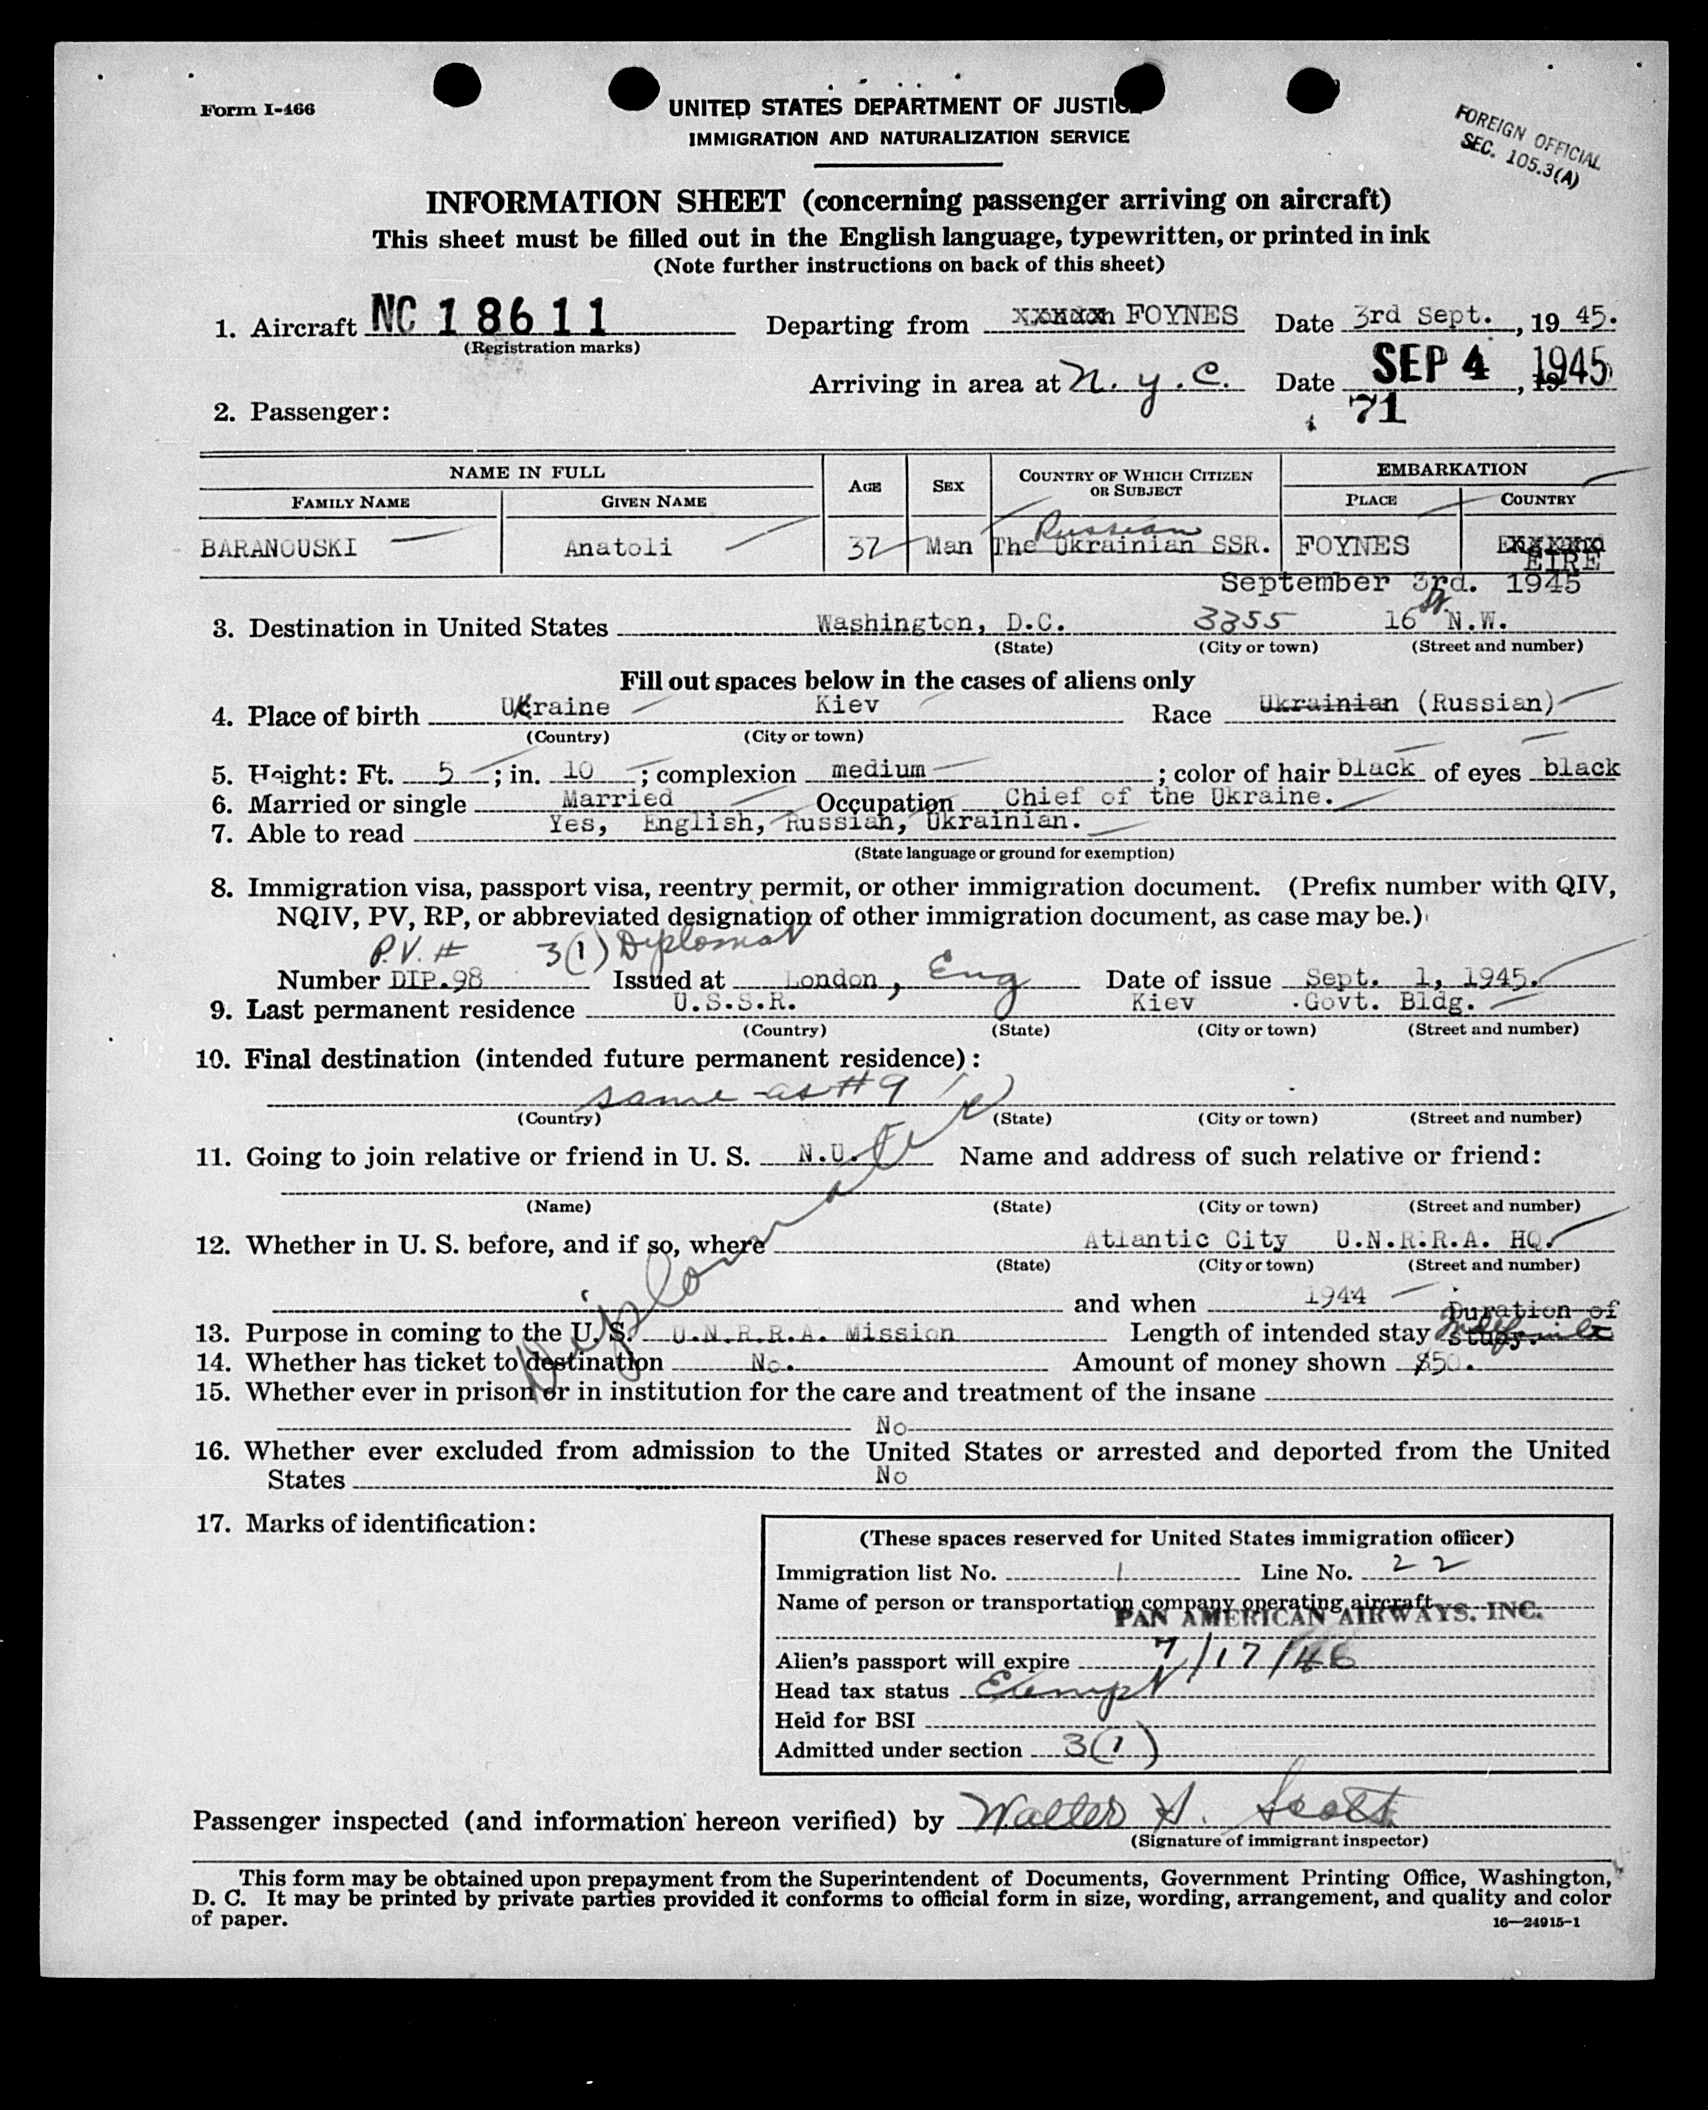 Form I-466
UNITED STATES DEPARTMENT OF JUSTICE
IMMIGRATION AND NATURALIZATION SERVICE
FOREIGN OFFICIAL
SEC. 105.3(A)
INFORMATION SHEET (concerning passenger arriving on aircraft)
This sheet must be filled out in the English language, typewritten, or printed in ink
(Note further instructions on back of this sheet)
1. Aircraft NC 18611 Departing from FOYNES Date 3rd Sept., 19 45.
(Registration marks)
Arriving in area at N.Y.C. Date SEP 4, 1945
71
2. Passenger:
NAME IN FULL AGE SEX COUNTRY OF WHICH CITIZEN OR SUBJECT EMBARKATION
FAMILY NAME GIVEN NAME PLACE COUNTRY
Russian
BARANOUSKI Anatoli 37 Man The Ukrainian SSR. FOYNES
EIRE
September 3rd. 1945
3. Destination in United States Washington, D.C. 3355 16 St. N.W.
(State) (City or town) (Street and number)
Fill out spaces below in the cases of aliens only
4. Place of birth Ukraine Kiev Race Ukrainian (Russian)
(Country) (City or town)
5. Height: Ft. 5; in. 10; complexion medium; color of hair black of eyes black
6. Married or single Married Occupation Chief of the Ukraine.
7. Able to read Yes, English, Russian, Ukrainian.
(State language or ground for exemption)
8. Immigration visa, passport visa, reentry permit, or other immigration document. (Prefix number with QIV,
NQIV, PV, RP, or abbreviated designation of other immigration document, as case may be.)
P.V. # 3(1) Diplomat
Number DIP.98 Issued at London, Eng Date of issue Sept. 1, 1945.
9. Last permanent residence U.S.S.R. Kiev Govt. Bldg.
(Country) (State) (City or town) (Street and number)
10. Final destination (intended future permanent residence):
same as #9
(Country) (State) (City or town) (Street and number)
11. Going to join relative or friend in U. S. N.U. Name and address of such relative or friend:
(Name) (State) (City or town) (Street and number)
12. Whether in U. S. before, and if so, where Atlantic City U.N.R.R.A. HQ.
(State) (City or town) (Street and number)
and when 1944
Duration of
13. Purpose in coming to the U. S. U.N.R.R.A. Mission Length of intended stay
14. Whether has ticket to destination No. Amount of money shown $50.
15. Whether ever in prison or in institution for the care and treatment of the insane
No
16. Whether ever excluded from admission to the United States or arrested and deported from the United
States No
17. Marks of identification:
(These spaces reserved for United States immigration officer)
Immigration list No. 1 Line No. 22
Name of person or transportation company operating aircraft
PAN AMERICAN AIRWAYS, INC.
Alien's passport will expire 7/17/46
Head tax status Exempt
Held for BSI
Admitted under section 3(1)
Passenger inspected (and information hereon verified) by Walter H. Scott
(Signature of immigrant inspector)
This form may be obtained upon prepayment from the Superintendent of Documents, Government Printing Office, Washington,
D. C. It may be printed by private parties provided it conforms to official form in size, wording, arrangement, and quality and color
of paper.
16—24915-1